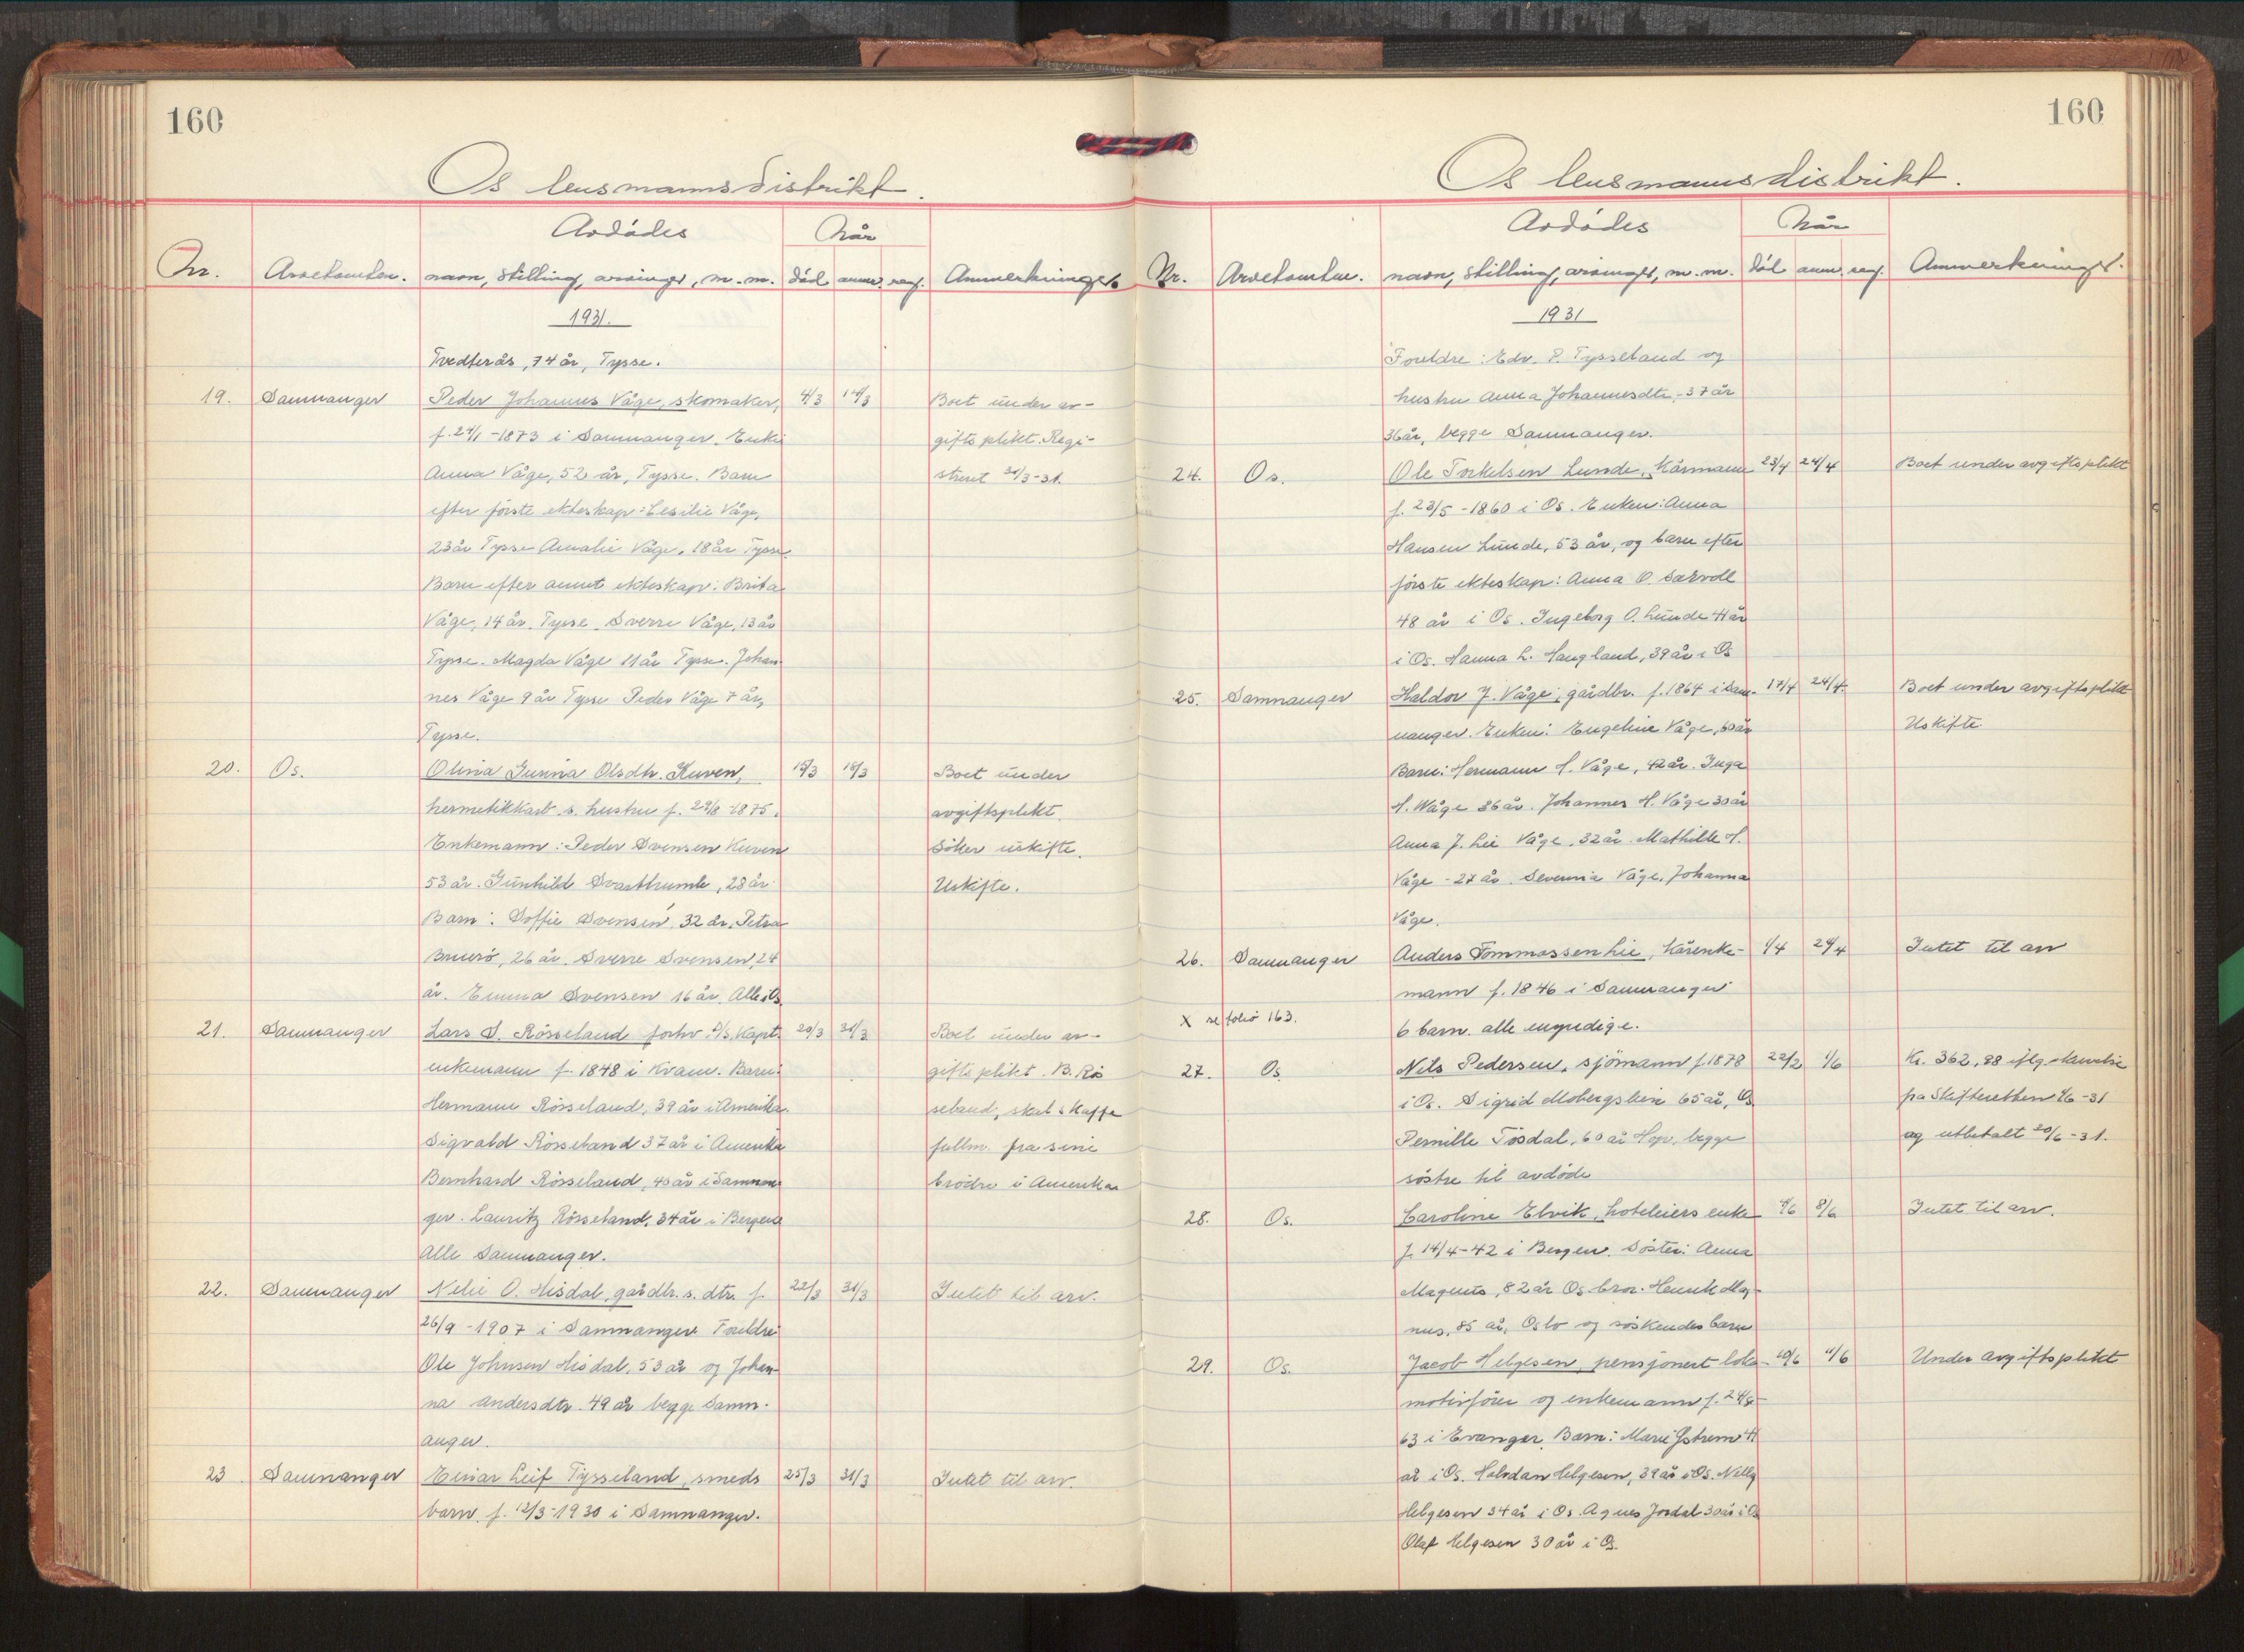 160
Os lensmannsdistrikt.
Avdødes
Når
Nr. Arvetomten. navn, stilling, arvinger, m.m. død anm. reg. Anmerkninger.
1931.
Tvedterås, 74 år, Tysse.
19. Samnanger Peder Johannes Våge, skomaker, 4/3 14/3 Boet under av-
f. 24/1 - 1873 i Samnanger. Enke giftsplikt. Regi-
Anna Våge, 52 år, Tysse. Barn streret 30/3-31.
efter første ekteskap: Cesilie Våge,
23 år Tysse Amalie Våge, 18 år Tysse.
Barn efter annet ekteskap: Brita
Våge, 14 år, Tysse. Sverre Våge, 13 år
Tysse. Magda Våge 11 år Tysse. Johan-
nes Våge 9 år Tysse Peder Våge 7 år,
Tysse.
20. Os. Olina Gurina Olsdtr. Kuven, 15/3 18/3 Boet under
hermetikkarb. s. hustru f. 29/8-1875. avgiftsplikt.
Enkemann: Peder Svensen Kuven Søker uskifte.
53 år. Gunhild Svarthumle, 28 år. Uskifte.
Barn: Soffie Svensen, 32 år, Petra
26 år. Sverre Svensen, 24
år. Emma Svensen 16 år. Alle i Os.
21. Samnanger Lars S. Rösseland forhv. D/S. kapt. 20/3 31/3 Boet under av-
enkemann f. 1848 i Kvam. Barn: giftsplikt. B. Rös
Hermann Rösseland, 39 år i Amerika. seland, skal skaffe
Sigvald Rösseland 37 år i Amerika fullm. fra sine
Bernhard Rösseland, 40 år i Samnan brödre i Amerika
ger. Lauritz Rösseland, 34 år i Bergen
Alle Samnanger.
22. Samnanger Nelie O. Hisdal, gårdbr. s. dtr. f. 22/3 31/3 Intet til arv.
26/9 - 1907 i Samnanger Foreldre:
Ole Johnsen Hisdal, 53 år og Johan-
na Andersdtr. 49 år begge Samn-
anger.
23 Samnanger Einar Leif Tysseland, smeds 25/3 31/3 Intet til arv.
barn, f. 12/3-1930 i Samnanger.
160
Os lensmannsdistrikt.
Avdødes
Når
Nr. Arvetomten. navn, stilling, arvinger, m.m. død anm. reg. Anmerkninger.
1931
Foreldre: Edv. P. Tysseland og
hustru Anna Johannesdtr, 37 år
36 år, begge Samnanger.
24. Os. Ole Torkelsen Lunde, kårmann 23/4 24/4 Boet under avgiftsplikt
f. 23/5 - 1860 i Os. Enken: Anna
Hansen Lunde, 53 år, og barn efter
første ekteskap: Anna O. Særvoll
48 år i Os. Ingeborg O. Lunde 41 år
i Os. Hanna L. Haugland, 39 år i Os
25. Samnanger Haldor J. Våge, gårdbr. f. 1864 i Sam- 17/4 24/4. Boet under avgiftsplikt
nanger. Enken: Engeline Våge, 60 år Uskifte
Barn: Hermann H. Våge, 42 år. Inga
H. Våge 36 år. Johannes H. Våge 30 år
Anna J. Lie Våge, 32 år. Mathilde H.
Våge - 27 år. Severina Våge, Johanna
Våge.
26. Samnanger Anders Tommassen Lie, kårenke- 1/4 29/4 Intet til arv
mann f. 1846 i Samnanger
x se folio 163. 6 barn. alle myndige.
27. Os Nils Pedersen, sjömann f. 1878 22/2 1/6 Kr. 362,88 iflg. skrivelse
i Os. Sigrid Mobergslien 65 år, Os fra Skifteretten 4/6-31
Pernille Tösdal, 60 år Hop, begge og utbetalt 20/6-31.
söstre til avdöde
28. Os. Caroline Elvik, hoteleiers enke 4/6 8/6 Intet til arv.
f. 14/4-42 i Bergen. Söster: Anna
Magnus, 82 år Os bror: Henrik Mag-
nus, 85 år, Oslo og söskendes barn
29. Os. Jacob Helgesen, pensjonert loko- 10/6 11/6 Under avgiftsplikt
motivförer og enkemann f. 24/4-
63 i Evanger. Barn: Marie Ystrem 41
år i Os. Halvdan Helgesen, 39 år i Os. Nelly
Helgesen 34 år i Os. Agnes Jordal 30 år i Os
Olaf Helgesen 30 år i Os.